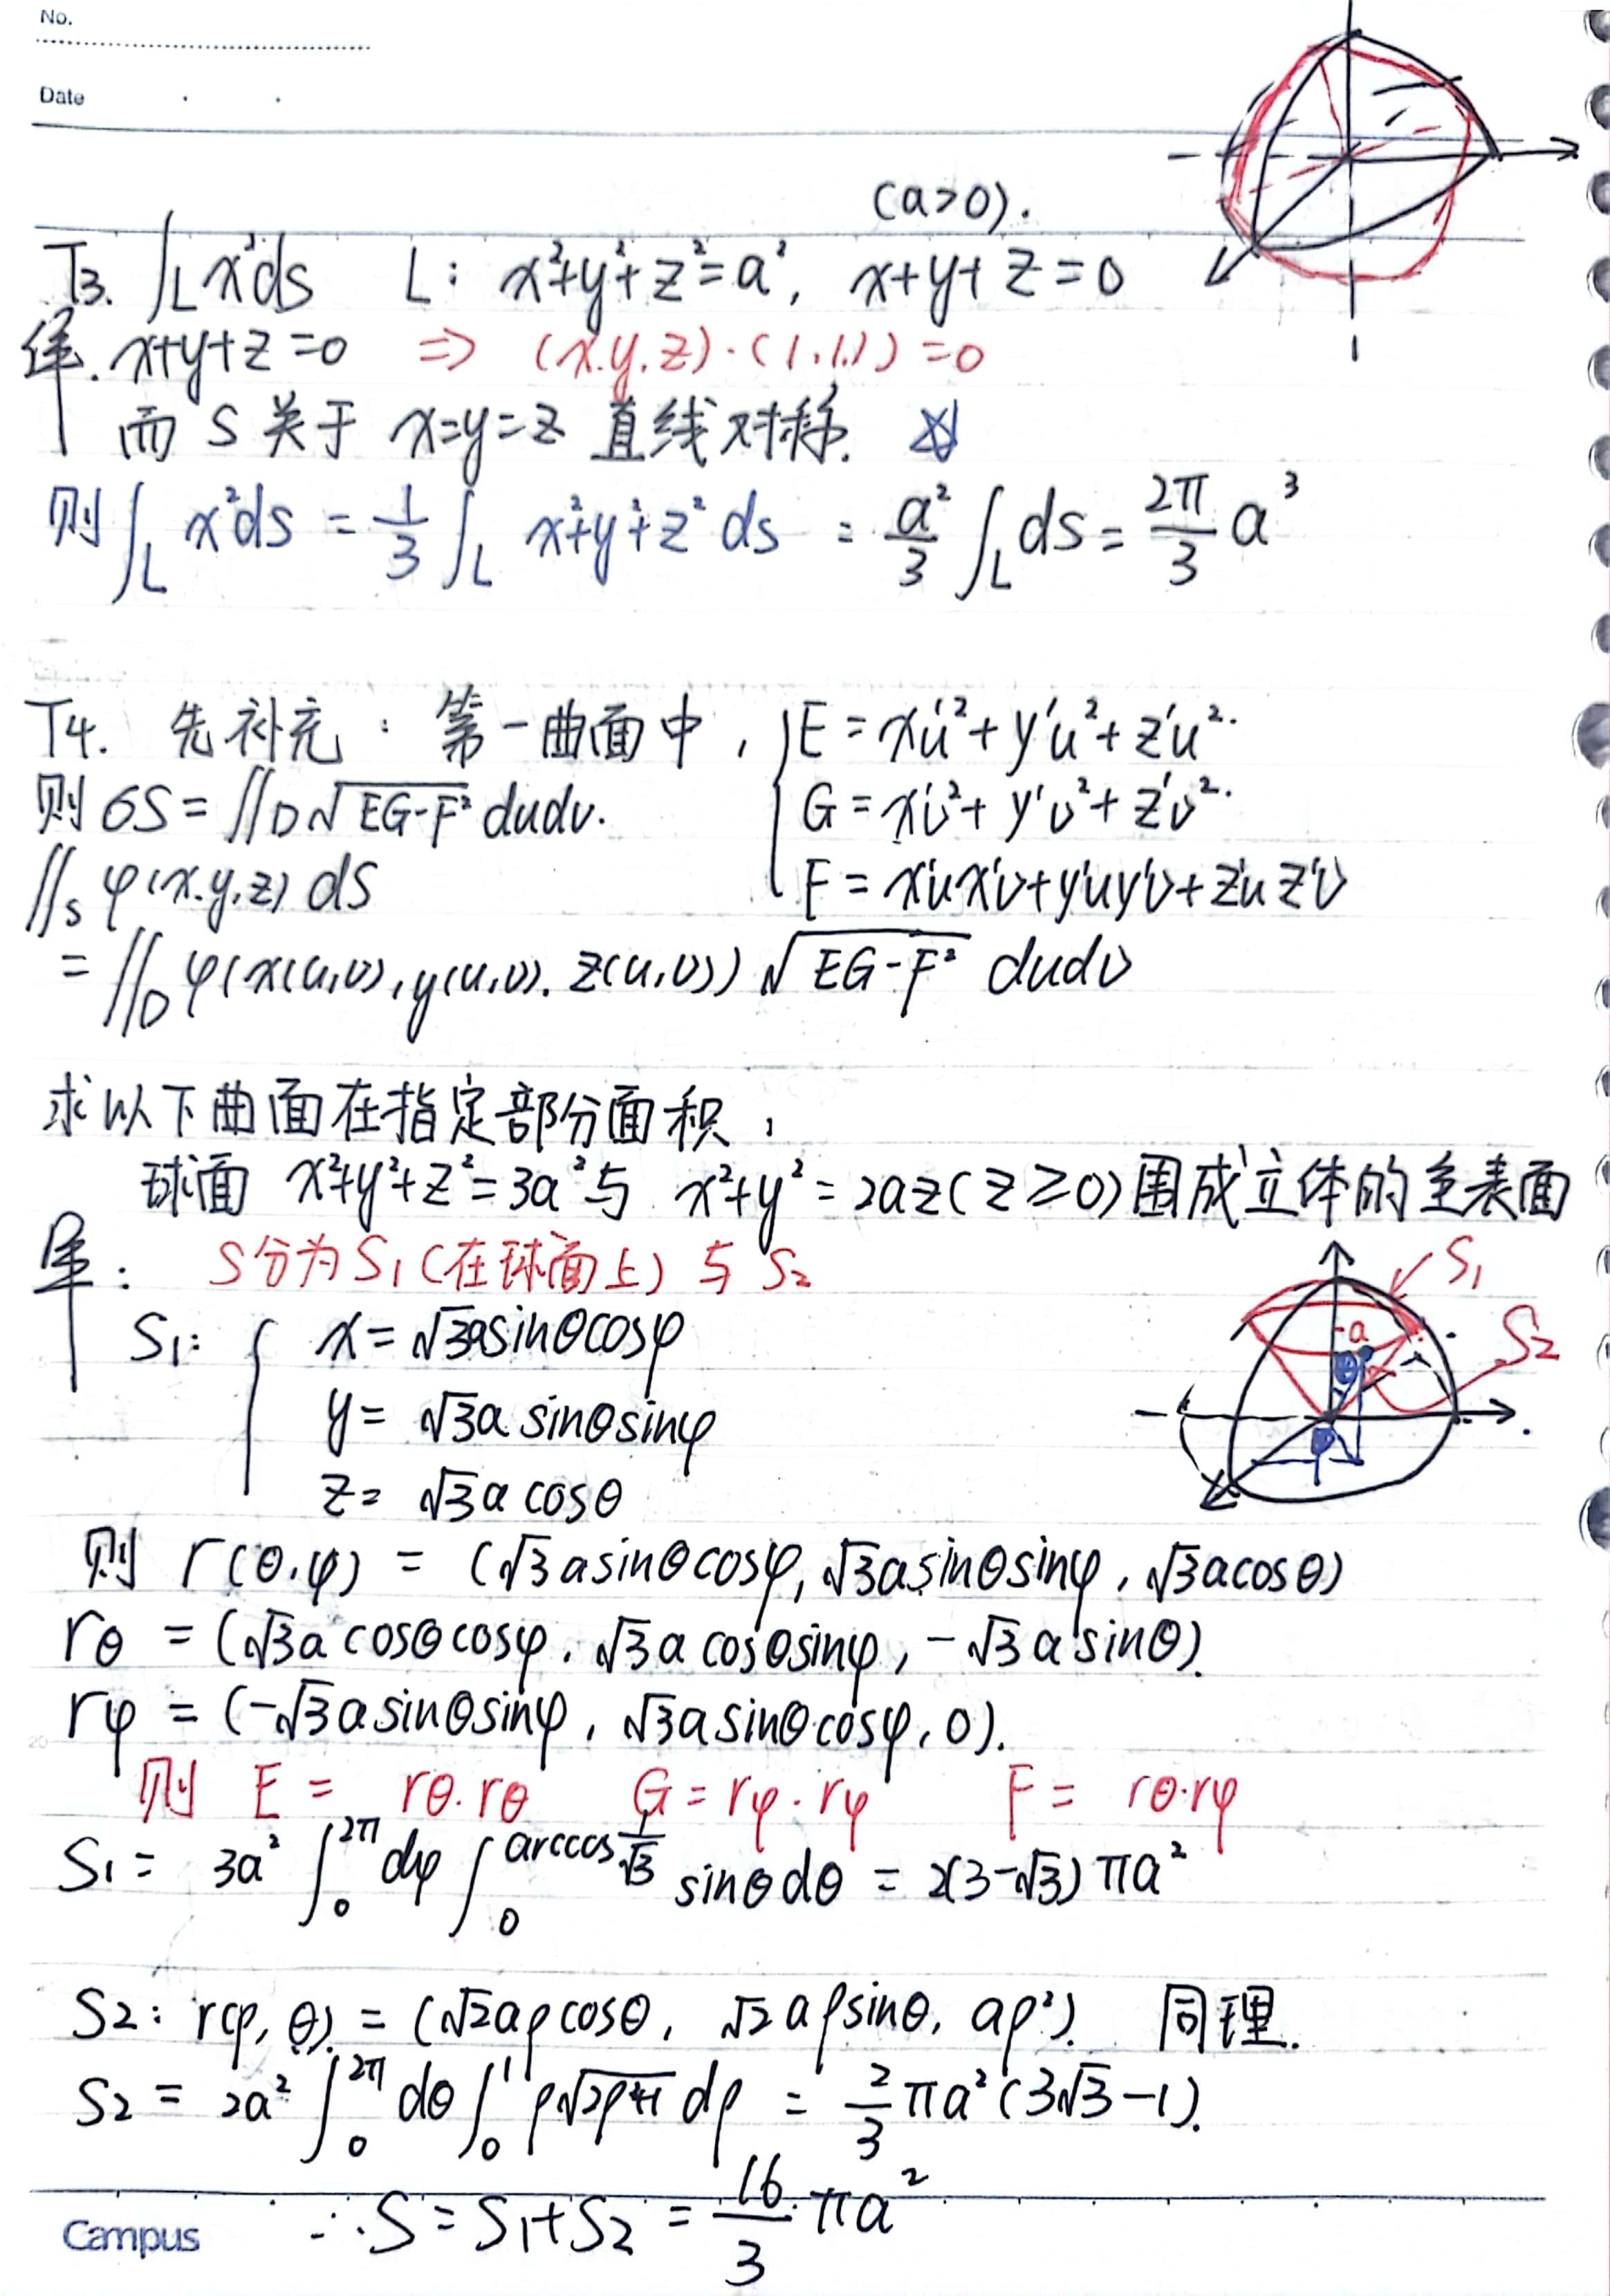 No.
Date
(a>0).
T3. ∫_L x²ds L: x²+y²+z²=a², x+y+z=0
解. x+y+z=0 ⇒ (x.y.z)·(1.1.1)=0
而 S 关于 x=y=z 直线对称.
则 ∫_L x²ds = 1/3 ∫_L x²+y²+z² ds = a²/3 ∫_L ds = 2π/3 a³
T4. 先补充: 第一曲面中, { E = x'u²+y'u²+z'u².
则 σS = ∬_D √(EG-F²) dudv. G = x'v²+y'v²+z'v².
∬_S φ(x.y.z) dS F = x'ux'v+y'uy'v+z'uz'v
= ∬_D φ(x(u,v),y(u,v).z(u,v)) √(EG-F²) dudv
求以下曲面在指定部分面积:
球面 x²+y²+z²=3a² 与 x²+y²=2az (z≥0) 围成立体的全表面
解: S分为S₁(在球面上)与 S₂
S₁
S₂
a
θ
φ
S₁: { x = √3asinθcosφ
y = √3a sinθsinφ
z = √3a cosθ
则 r(θ.φ) = (√3asinθcosφ, √3asinθsinφ, √3acosθ)
rθ = (√3a cosθcosφ. √3a cosθsinφ, -√3a sinθ).
rφ = (-√3asinθsinφ, √3asinθcosφ, 0).
则 E = rθ.rθ G = rφ.rφ F = rθ.rφ
S₁ = 3a² ∫₀^2π dφ ∫₀^arccos 1/√3 sinθdθ = 2(3-√3)πa²
S₂: r(ρ,θ) = (√2aρcosθ, √2aρsinθ, aρ²). 同理.
S₂ = 2a² ∫₀^2π dθ ∫₀^1 ρ√(2ρ²+1) dρ = 2/3 πa²(3√3-1).
∴ S = S₁+S₂ = 16/3 πa²
Campus